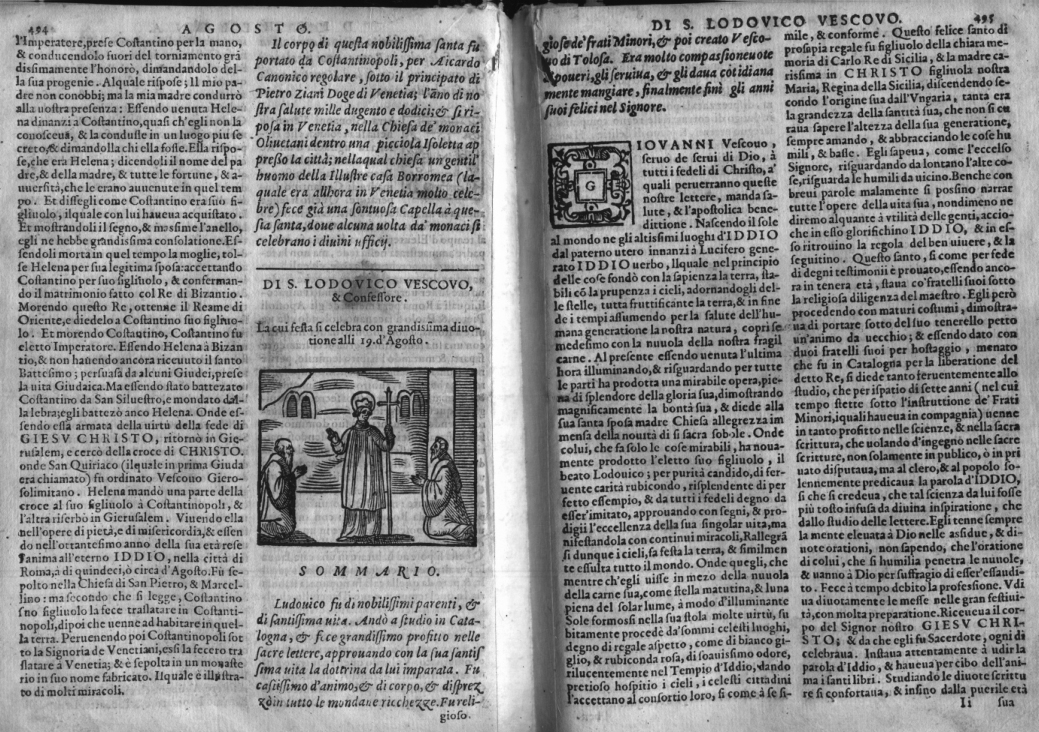 494
AGOSTO.
l'Imperatore, prese Costantino per la mano,
& conducendolo fuori del torniamento grã
dissimamente l'honorò, dimandandolo del-
la sua progenie. Al quale rispose; Il mio pa-
dre non conobbi; ma la mia madre condurrò
alla nostra presenza: Essendo uenuta Hele-
na dinanzi a Costãtino, quasi ch'egli non la
conosceua, & la condusse in un luogo piu se
creto, & dimandolla chi ella fosse. Ella rispo-
se, che era Helena; dicendoli il nome del pa
dre, & della madre, & tutte le fortune, & a-
uuersità, che le erano auuenute in quel tem
po. Et dissegli come Costãtino era suo fi-
gliuolo, il quale con lui haueua acquistato.
Et mostrandoli il segno, & mossime l'anello,
egli ne hebbe grandissima consolatione. Es-
sendoli morta in quel tempo la moglie, tol-
se Helena per sua legitima sposa: accettando
Costantino per suo figliuolo, & conferman-
do il matrimonio fatto col Re di Bizantio.
Morendo questo Re, ottenne il Reame di
Oriente, e diedelo a Costãtino suo figliuo-
lo. Et morendo Costautino, Costãtino fu
eletto Imperatore. Essendo Helena à Bizan
tio, & non hauendo ancora riceuuto il santo
Battesimo; persuasa da alcuni Giudei, prese
la uita Giudaica. Ma essendo stato battezato
Costantino da San Siluestro, e mondato dal-
la lebra; egli battezò anco Helena. Onde es-
sendo essa armata della uirtù della fede di
GIESV CHRISTO, ritornò in Gie-
rusalem, e cercò della croce di CHRISTO.
onde San Quiriaco (il quale in prima Giuda
era chiamato) fu ordinato Vescouo Giero-
solimitano. Helena mandò una parte della
croce al suo figliuolo à Costantinopoli, &
l'altra riserbò in Gierusalem. Viuendo ella
nell'opere di pietà, e di misericordia, & essen
do nell'ottantesimo anno della sua età rese
l'anima all'eterno IDDIO, nella città di
Roma, à di quindeci, ò circa d'Agosto. Fù se-
polto nella Chiesa di San Pietro, & Marcel-
lino: ma secondo che si legge, Costantino
sno figliuolo la fece traslatare in Costanti-
nopoli, dipoi che uenne ad habitare in quel-
la terra. Peruenendo poi Costãtinopoli sot
to la Signoria de Venetiani, essi la fecero tra
slatare a Venetia; & è sepolta in un monaste
rio in suo nome fabricato. Il quale è illustra-
to di molti miracoli.
Il corpo di questa nobilissima santa fu
portato da Costantinopoli, per Aicardo
Canonico regolare, sotto il principato di
Pietro Ziani Doge di Venetia; l'ãno di no
stra salute mille dugento e dodici; & si ri-
posa in Venetia, nella Chiesa de' monaci
Oliuetani dentro una picciola Isoletta ap
presso la città; nellaqual chiesa un gentil'
huomo della Illustre casa Borromea (la-
quale era allhora in Venetia molto cele-
bre) fece già una sontuosa Capella à que-
sta santa, doue alcuna uolta da' monaci si
celebrano i diuini ufficij.
DI S. LODOVICO VESCOVO,
& Confessore.
La cui festa si celebra con grandissima diuo-
tione alli 19. d'Agosto.
SOMMARIO.
Ludouico fu di nobilissimi parenti, &
di santissima uita. Andò a studio in Cata-
logna, & fece grandissimo profitto nelle
sacre lettere, approuando con la sua santis
sima uita la dottrina da lui imparata. Fu
castissimo d'animo, & di corpo, & disprez
zò in tutto le mondane ricchezze. Fu reli-
gioso.
DI S. LODOVICO VESCOVO.
495
gioso de' frati Minori, & poi creato Vesco-
uo di Tolosa. Era molto compassioneuote
a poueri, gli seruiua, & gli daua cõtidiana
mente mangiare, finalmente finì gli anni
suoi felici nel Signore.
G
IOVANNI Vescouo,
seruo de serui di Dio, à
tutti i fedeli di Christo, a'
quali peruerranno queste
nostre lettere, manda sa-
lute, & l'apostolica bene-
dittione. Nascendo il sole
al mondo ne gli altissimi luoghi d'IDDIO
dal paterno utero innanzi à Lucifero gene-
rato IDDIO uerbo, Il quale nel principio
delle cose fondò con la sapienza la terra, sta-
bilì cõ la prupenza i cieli, adornandogli del-
le stelle, tutta fruttificante la terra, & in fine
de i tempi assumendo per la salute dell'hu-
mana generatione la nostra natura, coprì se
medesimo con la nuuola della nostra fragil
carne. Al presente essendo uenuta l'ultima
hora illuminando, & risguardando per tutte
le parti ha prodotta una mirabile opera, pie-
na di splendore della gloria sua, dimostrando
magnificamente la bontà sua, & diede alla
sua santa sposa madre Chiesa allegrezza im
mensa della nouità di sì sacra sobole. Onde
colui, che fa solo le cose mirabili, ha noua-
mente prodotto l'eletto suo figliuolo, il
beato Lodouico; per purità candido, di fer-
uente carità rubicondo, risplendente di per
fetto essempio, & da tutti i fedeli degno da
esser'imitato, approuando con segni, & pro-
digij l'eccellenza della sua singolar uita, ma
nifestandola con continui miracoli, Rallegrã
si dunque i cieli, sa festa la terra, & similmen
te essulta tutto il mondo. Onde quegli, che
mentre ch'egli uisse in mezo della nuuola
della carne sua, come stella matutina, & luna
piena del solar lume, à modo d'illuminante
Sole formossi nella sua stola molte uirtù, su
bitamente procede da'sommi celesti luoghi,
degno di regale aspetto, come di bianco gi-
glio, & rubiconda rosa, di soauissimo odore,
rilucentemente nel Tempio d'Iddio, dando
pretioso hospitio i cieli, i celesti cittadini
l'accettano al consortio loro, sì come à se si-
mile, & conforme. Questo felice santo di
prosapia regale fu figliuolo della chiara me-
moria di Carlo Re di Sicilia, & la madre ca-
rissima in CHRISTO figliuola nostra
Maria, Regina della Sicilia, discendendo se-
condo l'origine sua dall'Vngaria, tanta era
la grandezza della santità sua, che non si cu
raua sapere l'altezza della sua generatione,
sempre amando, & abbracciando le cose hu
mili, & basse. Egli sapeua, come l'eccelso
Signore, risguardando da lontano l'alte co-
se, risguarda le humili da uicino. Benche con
breui parole malamente si possino narrar
tutte l'opere della uita sua, nondimeno ne
diremo alquante à vtilità delle genti, accio-
che in esso glorifichino IDDIO, & in es-
so ritrouino la regola del ben uiuere, & la
seguitino. Questo santo, sì come per sede
di degni testimonij è prouato, essendo anco-
ra in tenera età, staua co' fratelli suoi sotto
la religiosa diligenza del maestro. Egli però
procedendo con maturi costumi, dimostra-
ua di portare sotto del suo tenerello petto
un'animo da uecchio; & essendo dato con
duoi fratelli suoi per hostaggio, menato
che fu in Catalogna per la liberatione del
detto Re, si diede tanto feruentemente allo
studio, che per ispatio di sette anni (nel cui
tempo stette sotto l'instruttione de' Frati
Minori, iquali haueua in compagnia) uenne
in tanto profitto nelle scienze, & nella sacra
scrittura, che uolando d'ingegno nelle sacre
scritture, non solamente in publico, ò in pri
uato disputaua, ma al clero, & al popolo so-
lennemente predicaua la parola d'IDDIO,
sì che si credeua, che tal scienza da lui fosse
più tosto infusa da diuina inspiratione, che
dallo studio delle lettere. Egli tenne sempre
la mente eleuata à Dio nelle assidue, & di-
uote orationi, non sapendo, che l'oratione
di colui, che si humilia penetra le nuuole,
& uanno à Dio per suffragio di esser'essaudi-
to. Fece à tempo debito la professione. Vdi
ua diuotamente le messe nelle gran festiui-
tà, con molta preparatione. Riceueua il cor-
po del Signor nostro GIESV CHRI-
STO; & da che egli fu Sacerdote, ogni dì
celebraua. Instaua attentamente à udir la
parola d'Iddio, & haueua per cibo dell'ani-
ma i santi libri. Studiando le diuote scrittu
re si confortaua, & insino dalla puerile età
Ii sua